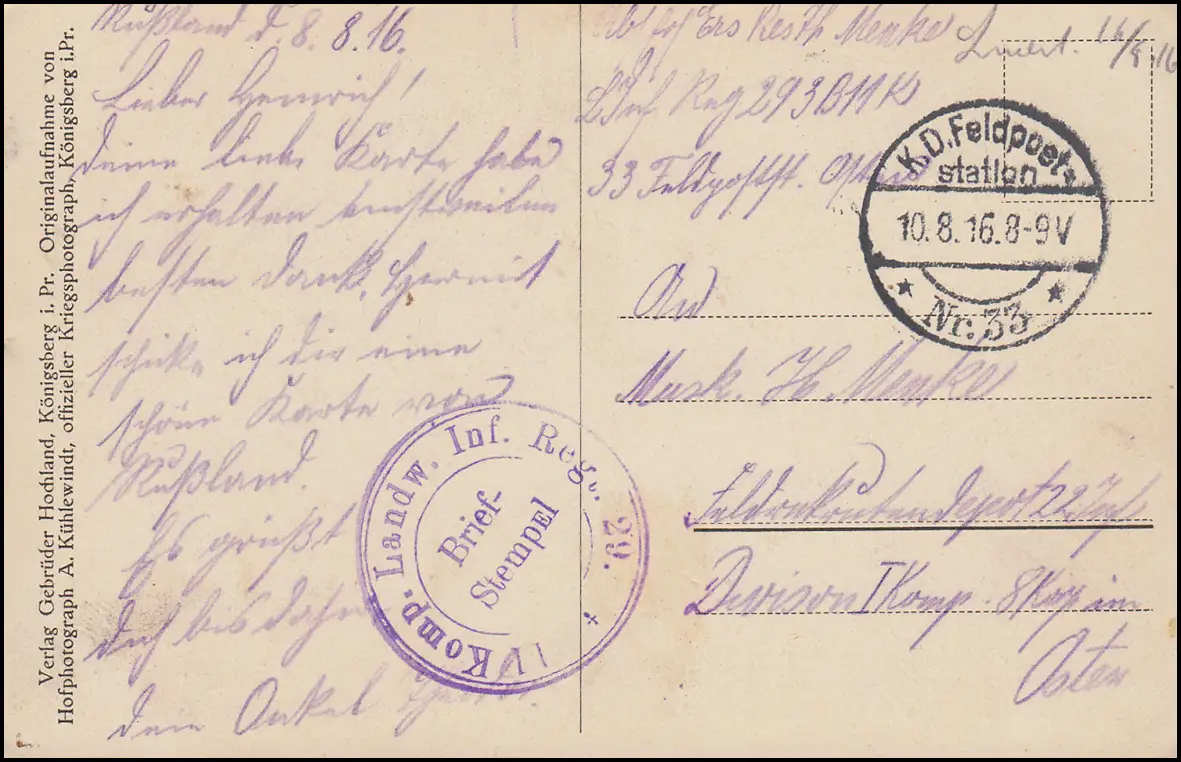 Verlag Gebrüder Hochland, Königsberg i. Pr. Originalaufnahme von
Hofphotograph A. Kühlewindt, offizieller Kriegsphotograph, Königsberg i.Pr.
Rußland d. 8. 8. 16.
Lieber Heinrich!
deine liebe Karte habe
ich erhalten einstweilen
besten Dank, Hiermit
schicke ich dir eine
schöne Karte von
Rußland.
Es grüßt
dich bis dahin
dein Onkel
Ers Resth Menke
L Inf Reg 293 B 11 K
33 Feldpostst. Osten
16/8 16
K. D. Feldpost-
station
10. 8. 16. 8-9 V
Nr. 33
An
Musk. H. Menke
Feldrekrutendepot 22 Inf
Division I Komp. 8 Korp im
Osten
Komp. Landw. Inf. Reg. 29.
Brief-
Stempel